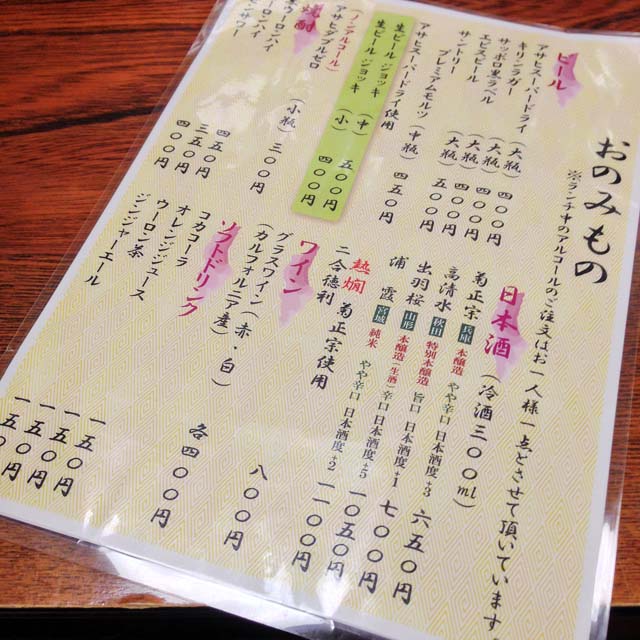 おのみもの
※ランチ中のアルコールのご注文はお一人様一点とさせて頂いています。
ビール
アサヒスーパードライ (大瓶) 四〇〇円
キリンラガー (大瓶) 四〇〇円
サッポロ黒ラベル (大瓶) 四〇〇円
エビスビール (大瓶) 五〇〇円
サントリー
プレミアムモルツ (中瓶) 四五〇円
アサヒスーパードライ使用
生ビール ジョッキ (中) 五〇〇円
生ビール ジョッキ (小) 四〇〇円
ノンアルコール
アサヒダブルゼロ (小瓶) 三〇〇円
焼酎
四五〇円
三五〇円
四〇〇円
日本酒 (冷酒三〇〇ml)
菊正宗 兵庫 本醸造 やや辛口 日本酒度+3 六五〇円
高清水 秋田 特別本醸造 旨口 日本酒度+1 七〇〇円
出羽桜 山形 本醸造(生酒) 辛口 日本酒度+5 一〇五〇円
浦霞 宮城 純米 やや辛口 日本酒度+2 一一〇〇円
熱燗 菊正宗使用
二合徳利 八〇〇円
ワイン
グラスワイン(赤・白) 各四〇〇円
(カルフォルニア産)
ソフトドリンク
コカコーラ 一五〇円
オレンジジュース 一五〇円
ウーロン茶 一五〇円
ジンジャーエール 一五〇円